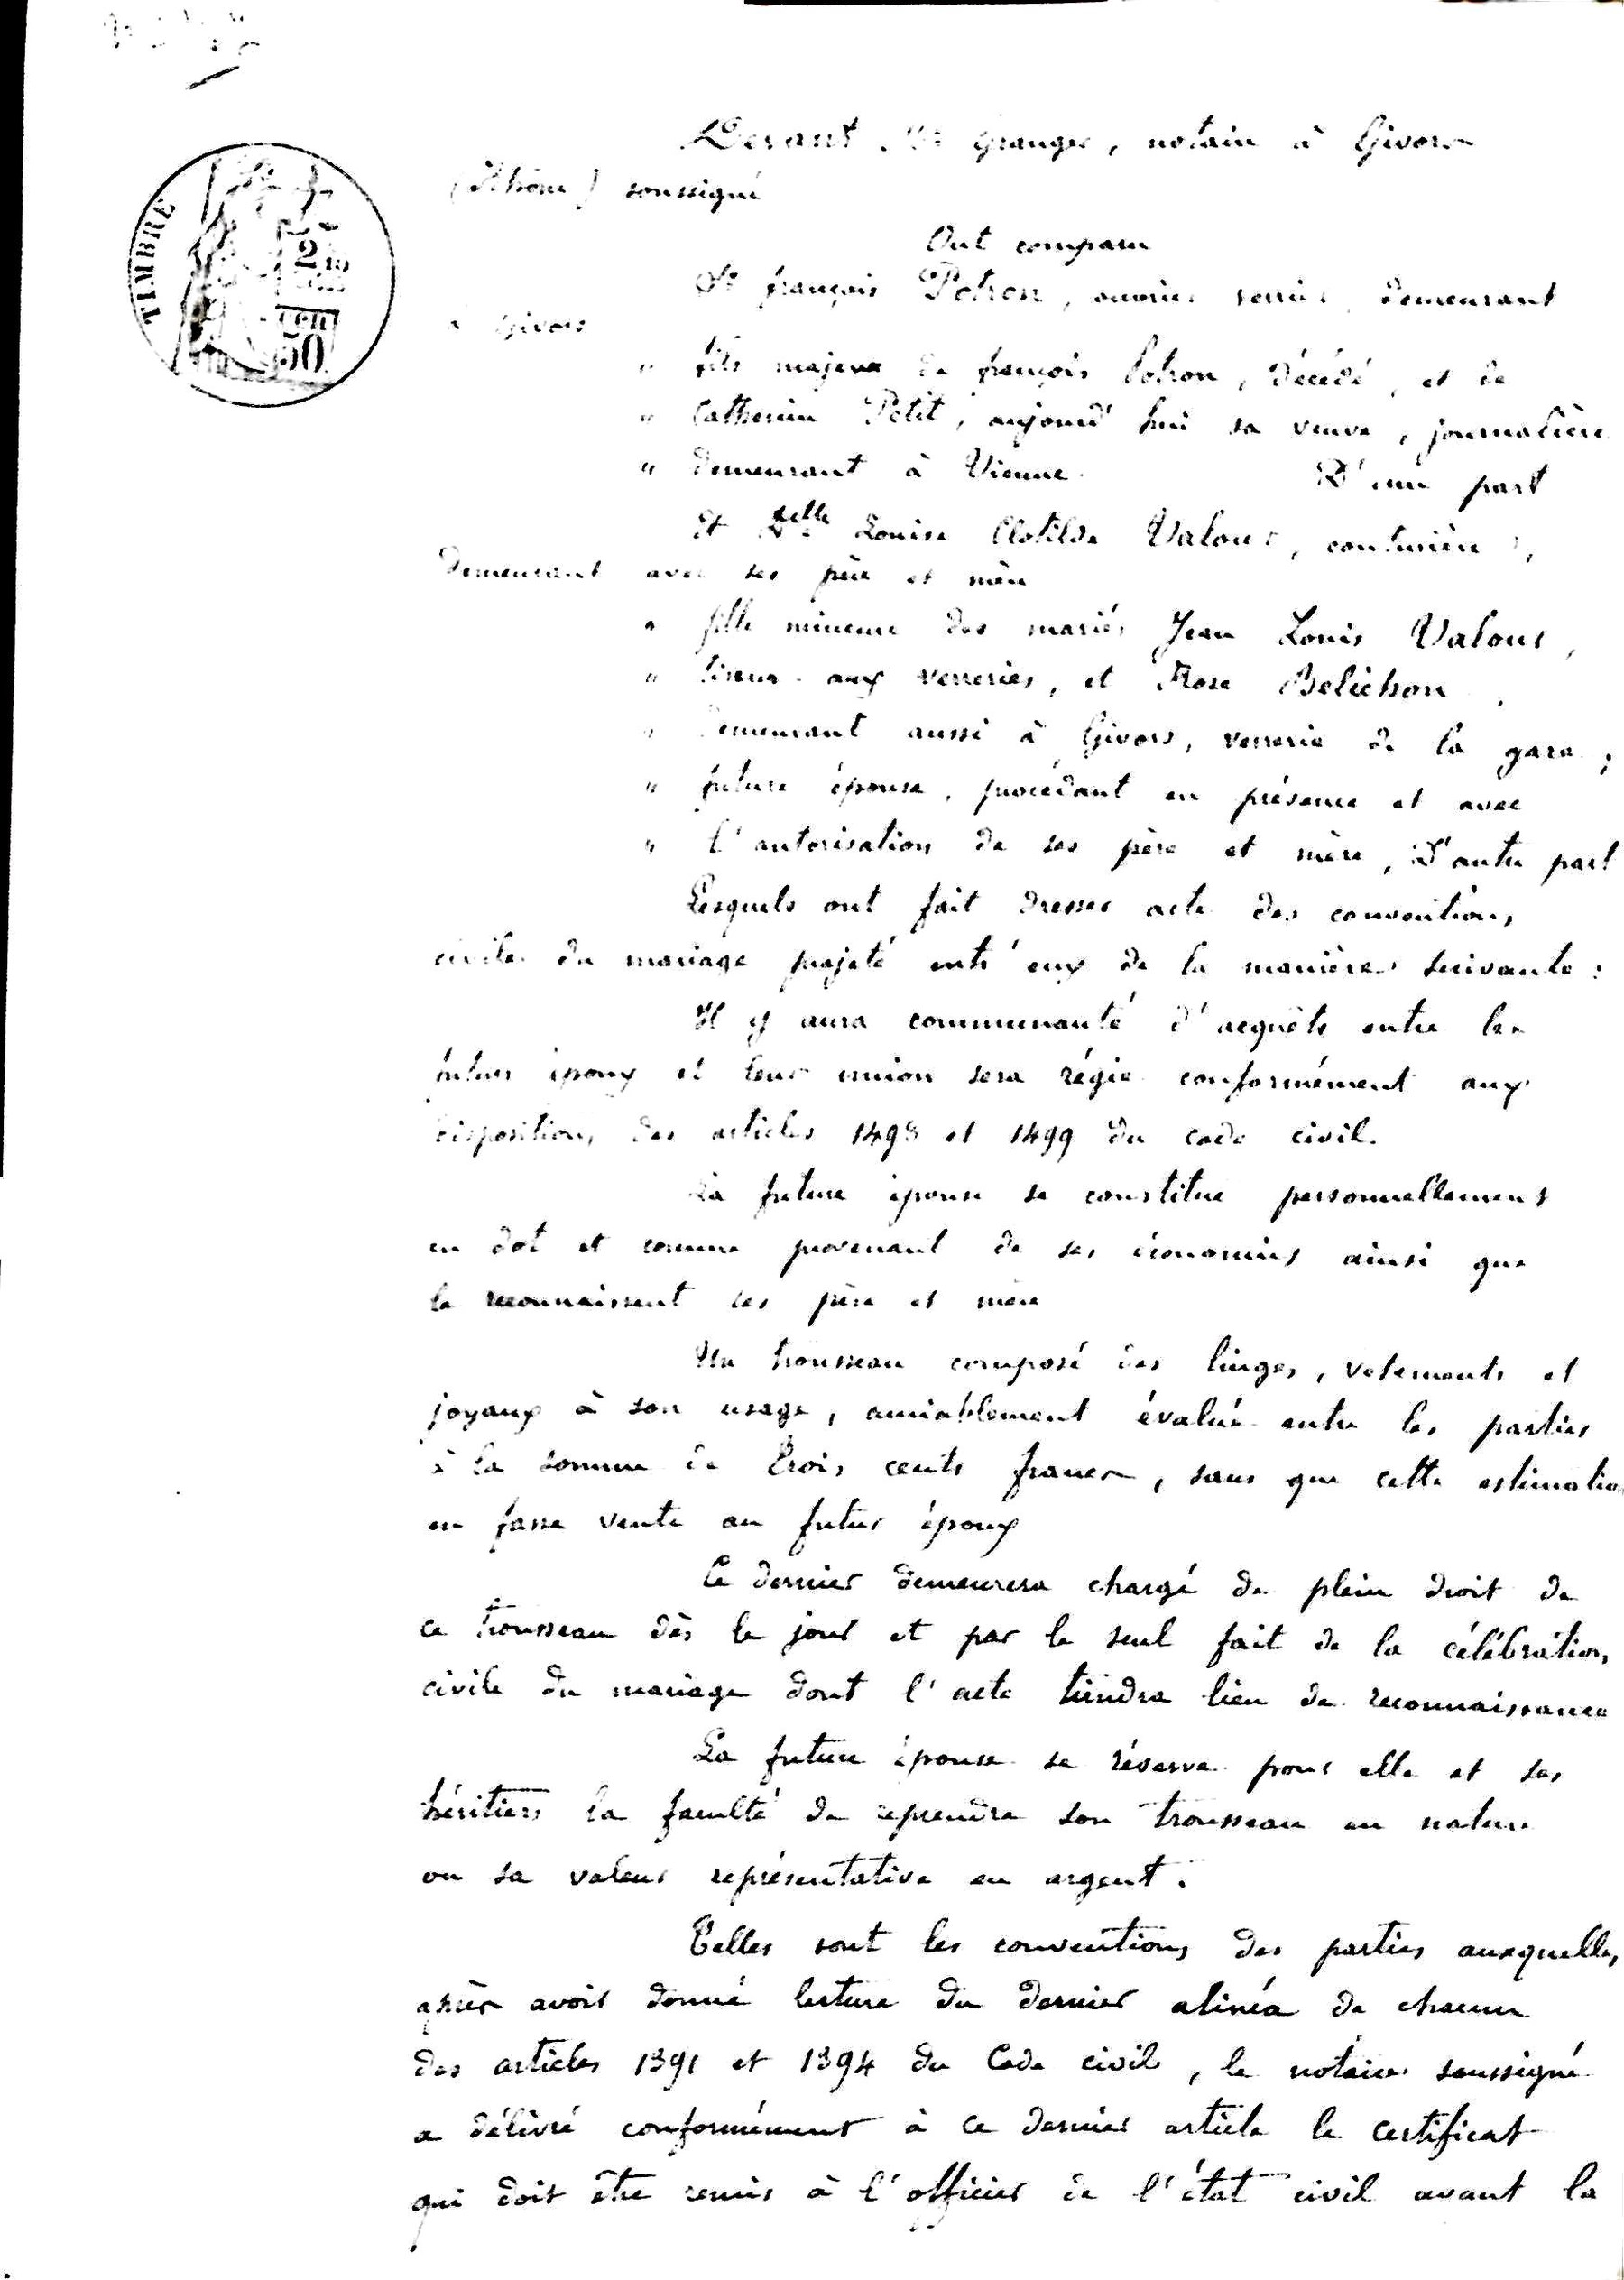 Devant Me Granger, notaire à Givors
(Rhône) soussigné
Ont comparu
Sr françois Potron, ouvrier verrier, demeurant
à Givors
" fils majeur de françois Potron, décédé, et de
" Catherine Petit, aujourd'hui sa veuve, journalière
" demeurant à Vienne. D'une part
Et Delle Louise Clotilde Valour, couturière,
demeurant avec ses père et mère
" fille mineure des mariés Jean Louis Valour,
" tireur aux verreries, et Rose Belichon,
" demeurant aussi à Givors, verrerie de la gare ;
" future épouse, procédant en présence et avec
" l'autorisation de ses père et mère, D'autre part
Lesquels ont fait dresser acte des conventions
civiles du mariage projeté entr'eux de la manière suivante :
Il y aura communauté d'acquêts entre les
futurs époux et leur union sera régie conformément aux
dispositions des articles 1498 et 1499 du code civil.
La future épouse se constitue personnellement
en dot et comme provenant de ses économies ainsi que
le reconnaissent ses père et mère
Un trousseau composé des linges, vetements et
joyaux à son usage, amiablement évalué entre les parties
à la somme de Trois cents francs, sans que cette estimation
en fasse vente au futur époux
Ce dernier demeurera chargé de plein droit de
ce trousseau dès le jour et par le seul fait de la célébration
civile du mariage dont l'acte tiendra lieu de reconnaissance
La future épouse se réserve pour elle et ses
héritiers la faculté de reprendre son trousseau en nature
ou sa valeur représentative en argent.
Telles sont les conventions des parties auxquelles
après avoir donné lecture du dernier alinéa de chacun
des articles 1391 et 1394 du Code civil, le notaire soussigné
a délivré conformément à ce dernier article le certificat
qui doit être remis à l'officier de l'état civil avant la
TIMBRE
2
50